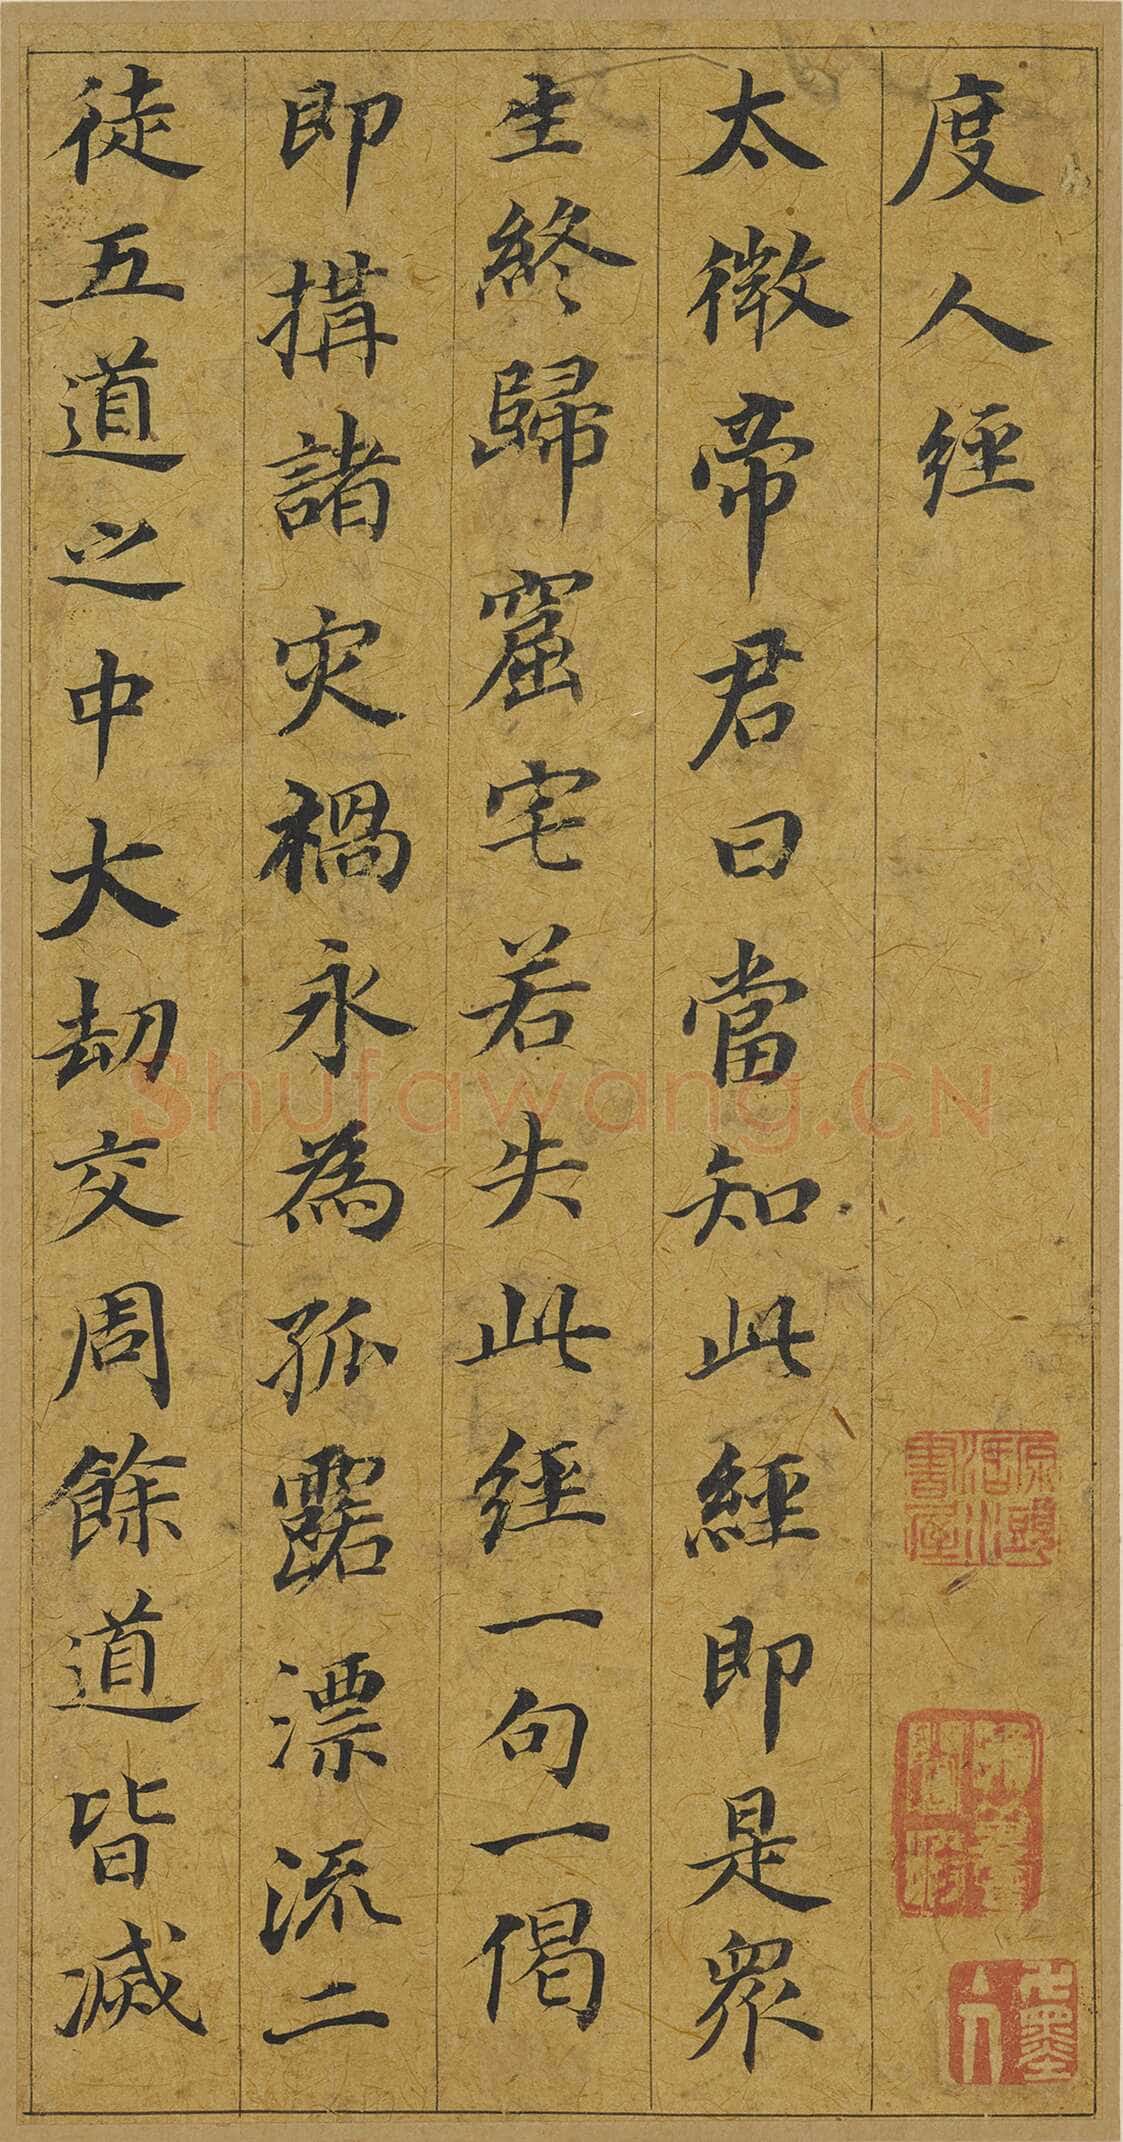 度人經
太微帝君曰當知此經即是衆
生終歸窟宅若失此經一句一偈
即搆諸灾禍永為孤露漂流二
徒五道之中大劫交周餘道皆滅
Shufawang.CN